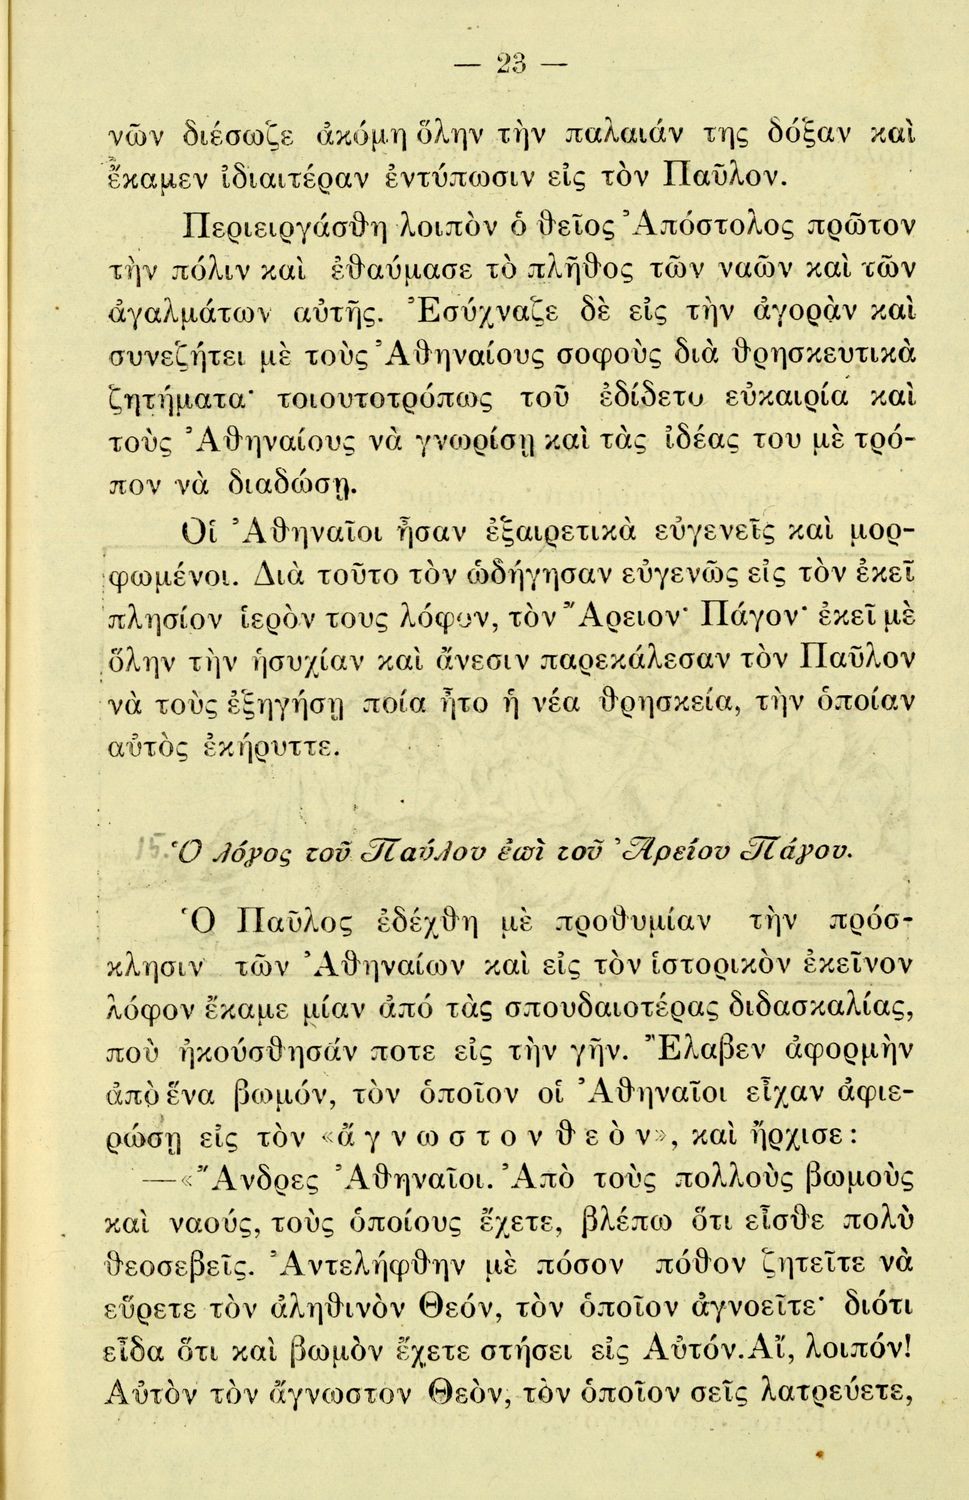 — 23 —
νῶν διέσωζε ἀκόμη ὅλην τὴν παλαιάν της δόξαν καὶ
ἔκαμεν ἰδιαιτέραν ἐντύπωσιν εἰς τὸν Παῦλον.
Περιειργάσθη λοιπὸν ὁ θεῖος Ἀπόστολος πρῶτον
τὴν πόλιν καὶ ἐθαύμασε τὸ πλῆθος τῶν ναῶν καὶ τῶν
ἀγαλμάτων αὐτῆς. Ἐσύχναζε δὲ εἰς τὴν ἀγορὰν καὶ
συνεζήτει μὲ τοὺς Ἀθηναίους σοφοὺς διὰ θρησκευτικὰ
ζητήματα· τοιουτοτρόπως τοῦ ἐδίδετο εὐκαιρία καὶ
τοὺς Ἀθηναίους νὰ γνωρίσῃ καὶ τὰς ἰδέας του μὲ τρό-
πον νὰ διαδώσῃ.
Οἱ Ἀθηναῖοι ἦσαν ἐξαιρετικὰ εὐγενεῖς καὶ μορ-
φωμένοι. Διὰ τοῦτο τὸν ὡδήγησαν εὐγενῶς εἰς τὸν ἐκεῖ
πλησίον ἱερὸν τους λόφον, τὸν Ἄρειον· Πάγον· ἐκεῖ μὲ
ὅλην τὴν ἡσυχίαν καὶ ἄνεσιν παρεκάλεσαν τὸν Παῦλον
νὰ τοὺς ἐξηγήσῃ ποία ἦτο ἡ νέα θρησκεία, τὴν ὁποίαν
αὐτὸς ἐκήρυττε.
Ὁ λόγος τοῦ Παύλου ἐπὶ τοῦ Ἀρείου Πάγου.
Ὁ Παῦλος ἐδέχθη μὲ προθυμίαν τὴν πρόσ-
κλησιν τῶν Ἀθηναίων καὶ εἰς τὸν ἱστορικὸν ἐκεῖνον
λόφον ἔκαμε μίαν ἀπό τὰς σπουδαιοτέρας διδασκαλίας,
ποὺ ἠκούσθησάν ποτε εἰς τὴν γῆν. Ἔλαβεν ἀφορμὴν
ἀπὸ ἕνα βωμόν, τὸν ὁποῖον οἱ Ἀθηναῖοι εἶχαν ἀφιε-
ρώσῃ εἰς τὸν «ἄ γ ν ω σ τ ο ν θ ε ὸ ν», καὶ ἤρχισε:
—«Ἄνδρες Ἀθηναῖοι. Ἀπὸ τοὺς πολλοὺς βωμοὺς
καὶ ναούς, τοὺς ὁποίους ἔχετε, βλέπω ὅτι εἶσθε πολὺ
θεοσεβεῖς. Ἀντελήφθην μὲ πόσον πόθον ζητεῖτε νὰ
εὕρετε τὸν ἀληθινὸν Θεόν, τὸν ὁποῖον ἀγνοεῖτε· διότι
εἶδα ὅτι καὶ βωμὸν ἔχετε στήσει εἰς Αὐτόν. Αἴ, λοιπόν!
Αὐτὸν τὸν ἄγνωστον Θεὸν, τὸν ὁποῖον σεῖς λατρεύετε,